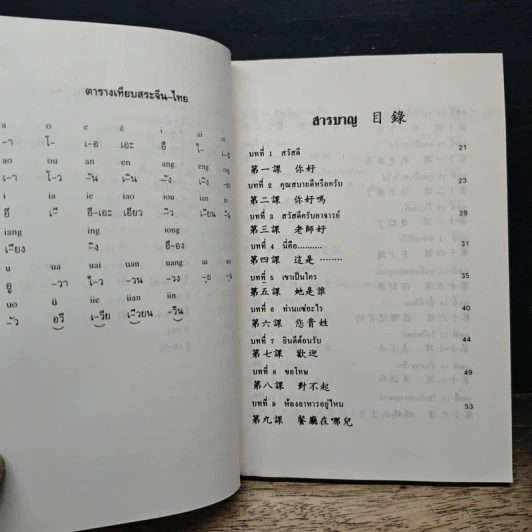 ตารางเทียบสระจีน-ไทย
a o e ê i ai
-า โ- เ-อ เอะ อี ไ-
ao ou an en ang eng
i ia ie iao iou ian
iang ing iong
เ-ียง -ิง อี-อง
u ua uai uan uang ui un
อู -วา ไ-ว -วน -วง -ุย
uo ü iie iian iin
-ัว อวี เ-วีย เ-วียน -วิน
สารบาญ 目錄
บทที่ 1 สวัสดี 21
第一課 你好
บทที่ 2 คุณสบายดีหรือครับ 23
第二課 你好嗎
บทที่ 3 สวัสดีครับอาจารย์ 28
第三課 老師好
บทที่ 4 นี่คือ.......... 31
第四課 這是 ........
บทที่ 5 เขาเป็นใคร 35
第五課 她是誰
บทที่ 6 ท่านแซ่อะไร 40
第六課 您貴姓
บทที่ 7 ยินดีต้อนรับ 44
第七課 歡迎
บทที่ 8 ขอโทษ 49
第八課 對不起
บทที่ 9 ห้องอาหารอยู่ไหน 53
第九課 餐廳在哪兒